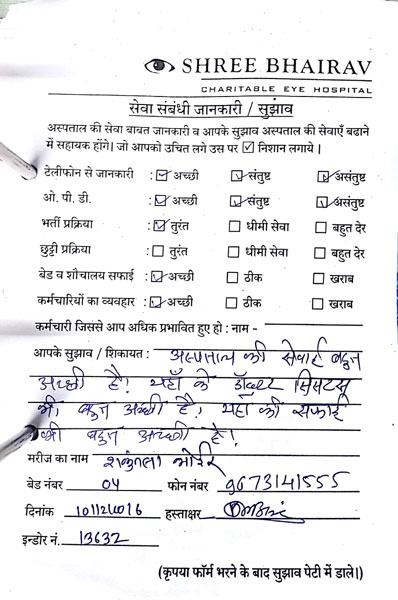 SHREE BHAIRAV
CHARITABLE EYE HOSPITAL
सेवा संबंधी जानकारी / सुझाव
अस्पताल की सेवा बाबत जानकारी व आपके सुझाव अस्पताल की सेवाएँ बढाने
में सहायक होंगे। जो आपको उचित लगे उस पर ☑ निशान लगाये।
टेलीफोन से जानकारी : ☑ अच्छी ☑ संतुष्ट ☑ असंतुष्ट
ओ. पी. डी. : ☑ अच्छी ☑ संतुष्ट ☑ असंतुष्ट
भर्ती प्रक्रिया : ☑ तुरंत ☐ धीमी सेवा ☐ बहुत देर
छुट्टी प्रक्रिया : ☐ तुरंत ☐ धीमी सेवा ☐ बहुत देर
बेड व शौचालय सफाई : ☑ अच्छी ☐ ठीक ☐ खराब
कर्मचारियों का व्यवहार : ☑ अच्छी ☐ ठीक ☐ खराब
कर्मचारी जिससे आप अधिक प्रभावित हुए हो : नाम -
आपके सुझाव / शिकायत : अस्पताल की सेवाएं बहुत
अच्छी है! यहाँ के डॉक्टर
भी बहुत अच्छी है! यहाँ की सफाई
भी बहुत अच्छी है!
मरीज का नाम शकुंतला
बेड नंबर 04 फोन नंबर 9673141555
दिनांक 10/12/2016 हस्ताक्षर
इन्डोर नं. 13632
(कृपया फॉर्म भरने के बाद सुझाव पेटी में डाले।)